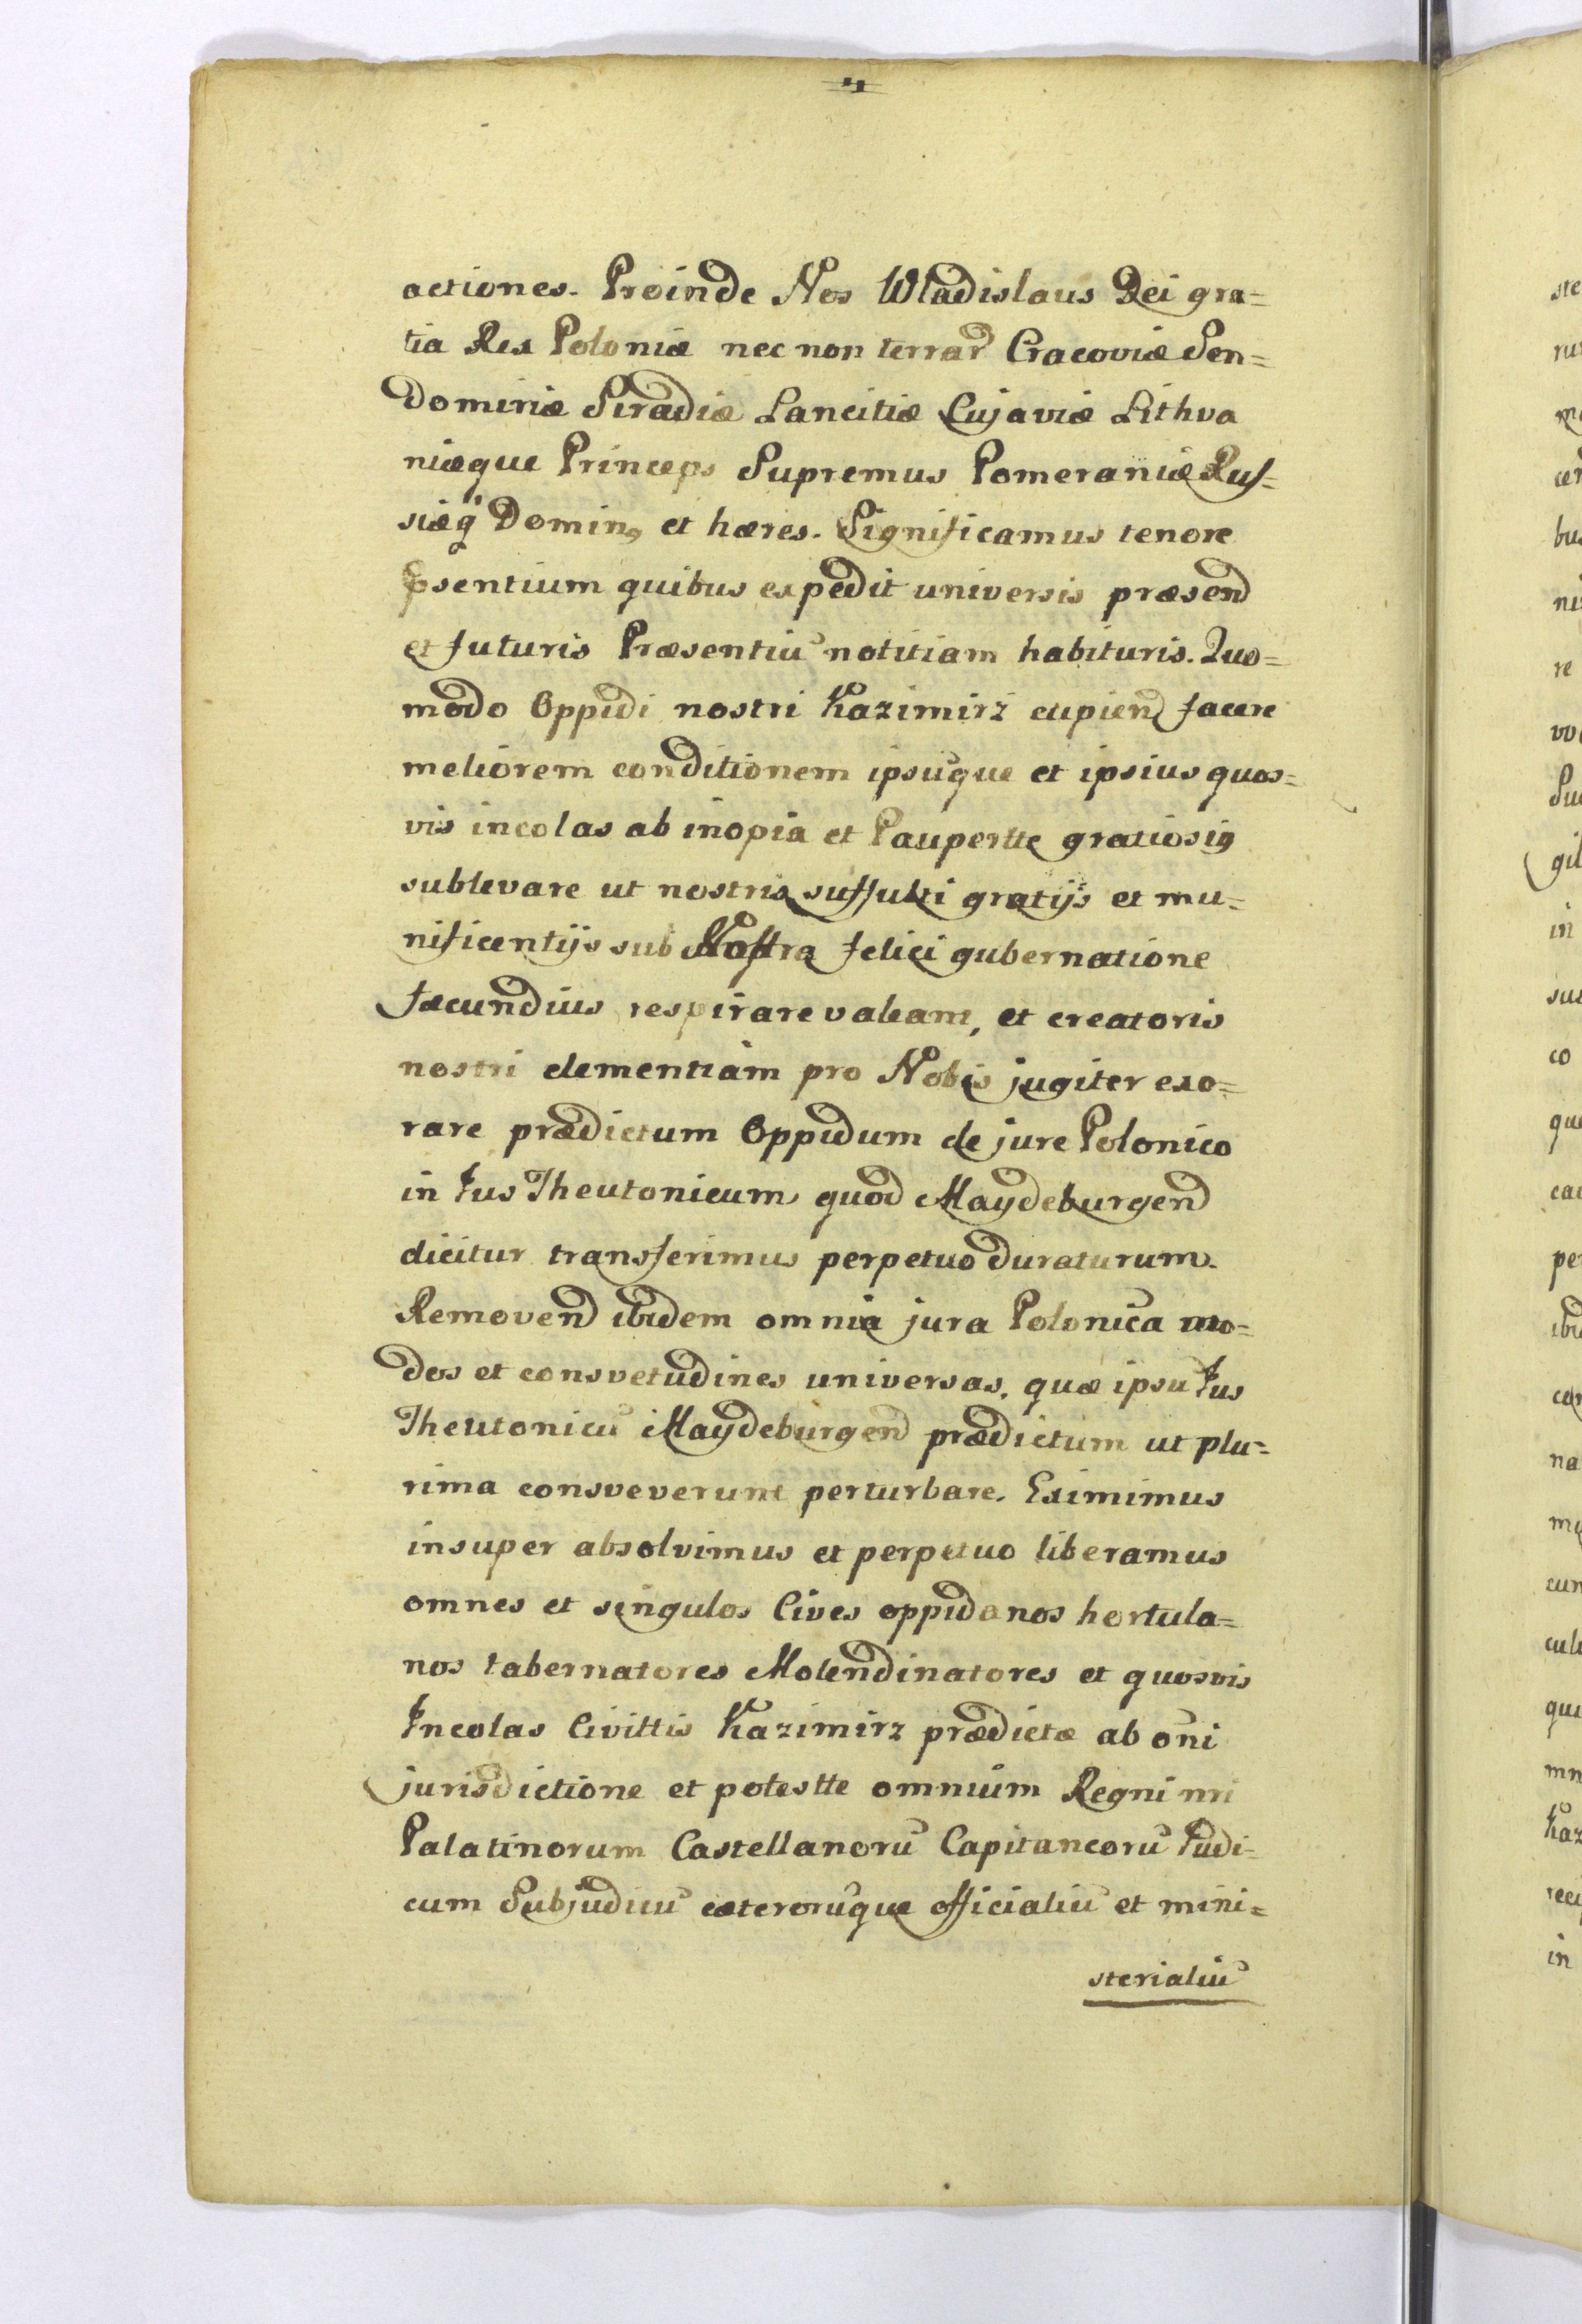 actiones. Proinde Nos Wladislaus Dei gra=
tia Rex Poloniæ nec non terrar Cracoviæ Sen=
domiriæ Siradiæ Lancitiæ Cujaviæ Lithva
niæque Princeps Supremus Pomeraniæ Rus=
siæq Domin9 et hæres. Significamus tenore
psentium quibus expedit universis præsend
et futuris Præsentiū notitiam habituris. Quo=
modo Oppidi nostri Kazimirz cupiend facere
meliorem conditionem ipsūque et ipsius quos=
vis incolas ab inopia et Paupertte gratiosi9
sublevare ut nostris suffulti gratijs et mu=
nificentijs sub Nostra felici gubernatione
fæcundius respirare valeant, et creatoris
nostri clementiam pro Nobis jugiter exo=
rare prædictum Oppidum de jure Polonico
in Jus Theutonicum quod Maydeburgend
dicitur transferimus perpetuo duraturum.
Removend ibidem omnia jura Polonica mo=
dos et consvetudines universas, quæ ipsu Jus
Theutonicū Maydeburgend prædictum ut plu=
rima consveverunt perturbare. Eximimus
insuper absolvimus et perpetuo liberamus
omnes et singulos Cives oppidanos hortula=
nos tabernatores Molendinatores et quosvis
Incolas Civittis Kazimirz prædictæ ab oni
jurisdictione et potestte omnium Regni nri
Palatinorum Castellanorū Capitaneorū Judi=
cum Subjudicū cæterorūque officialiū et mini=
sterialiū
ste